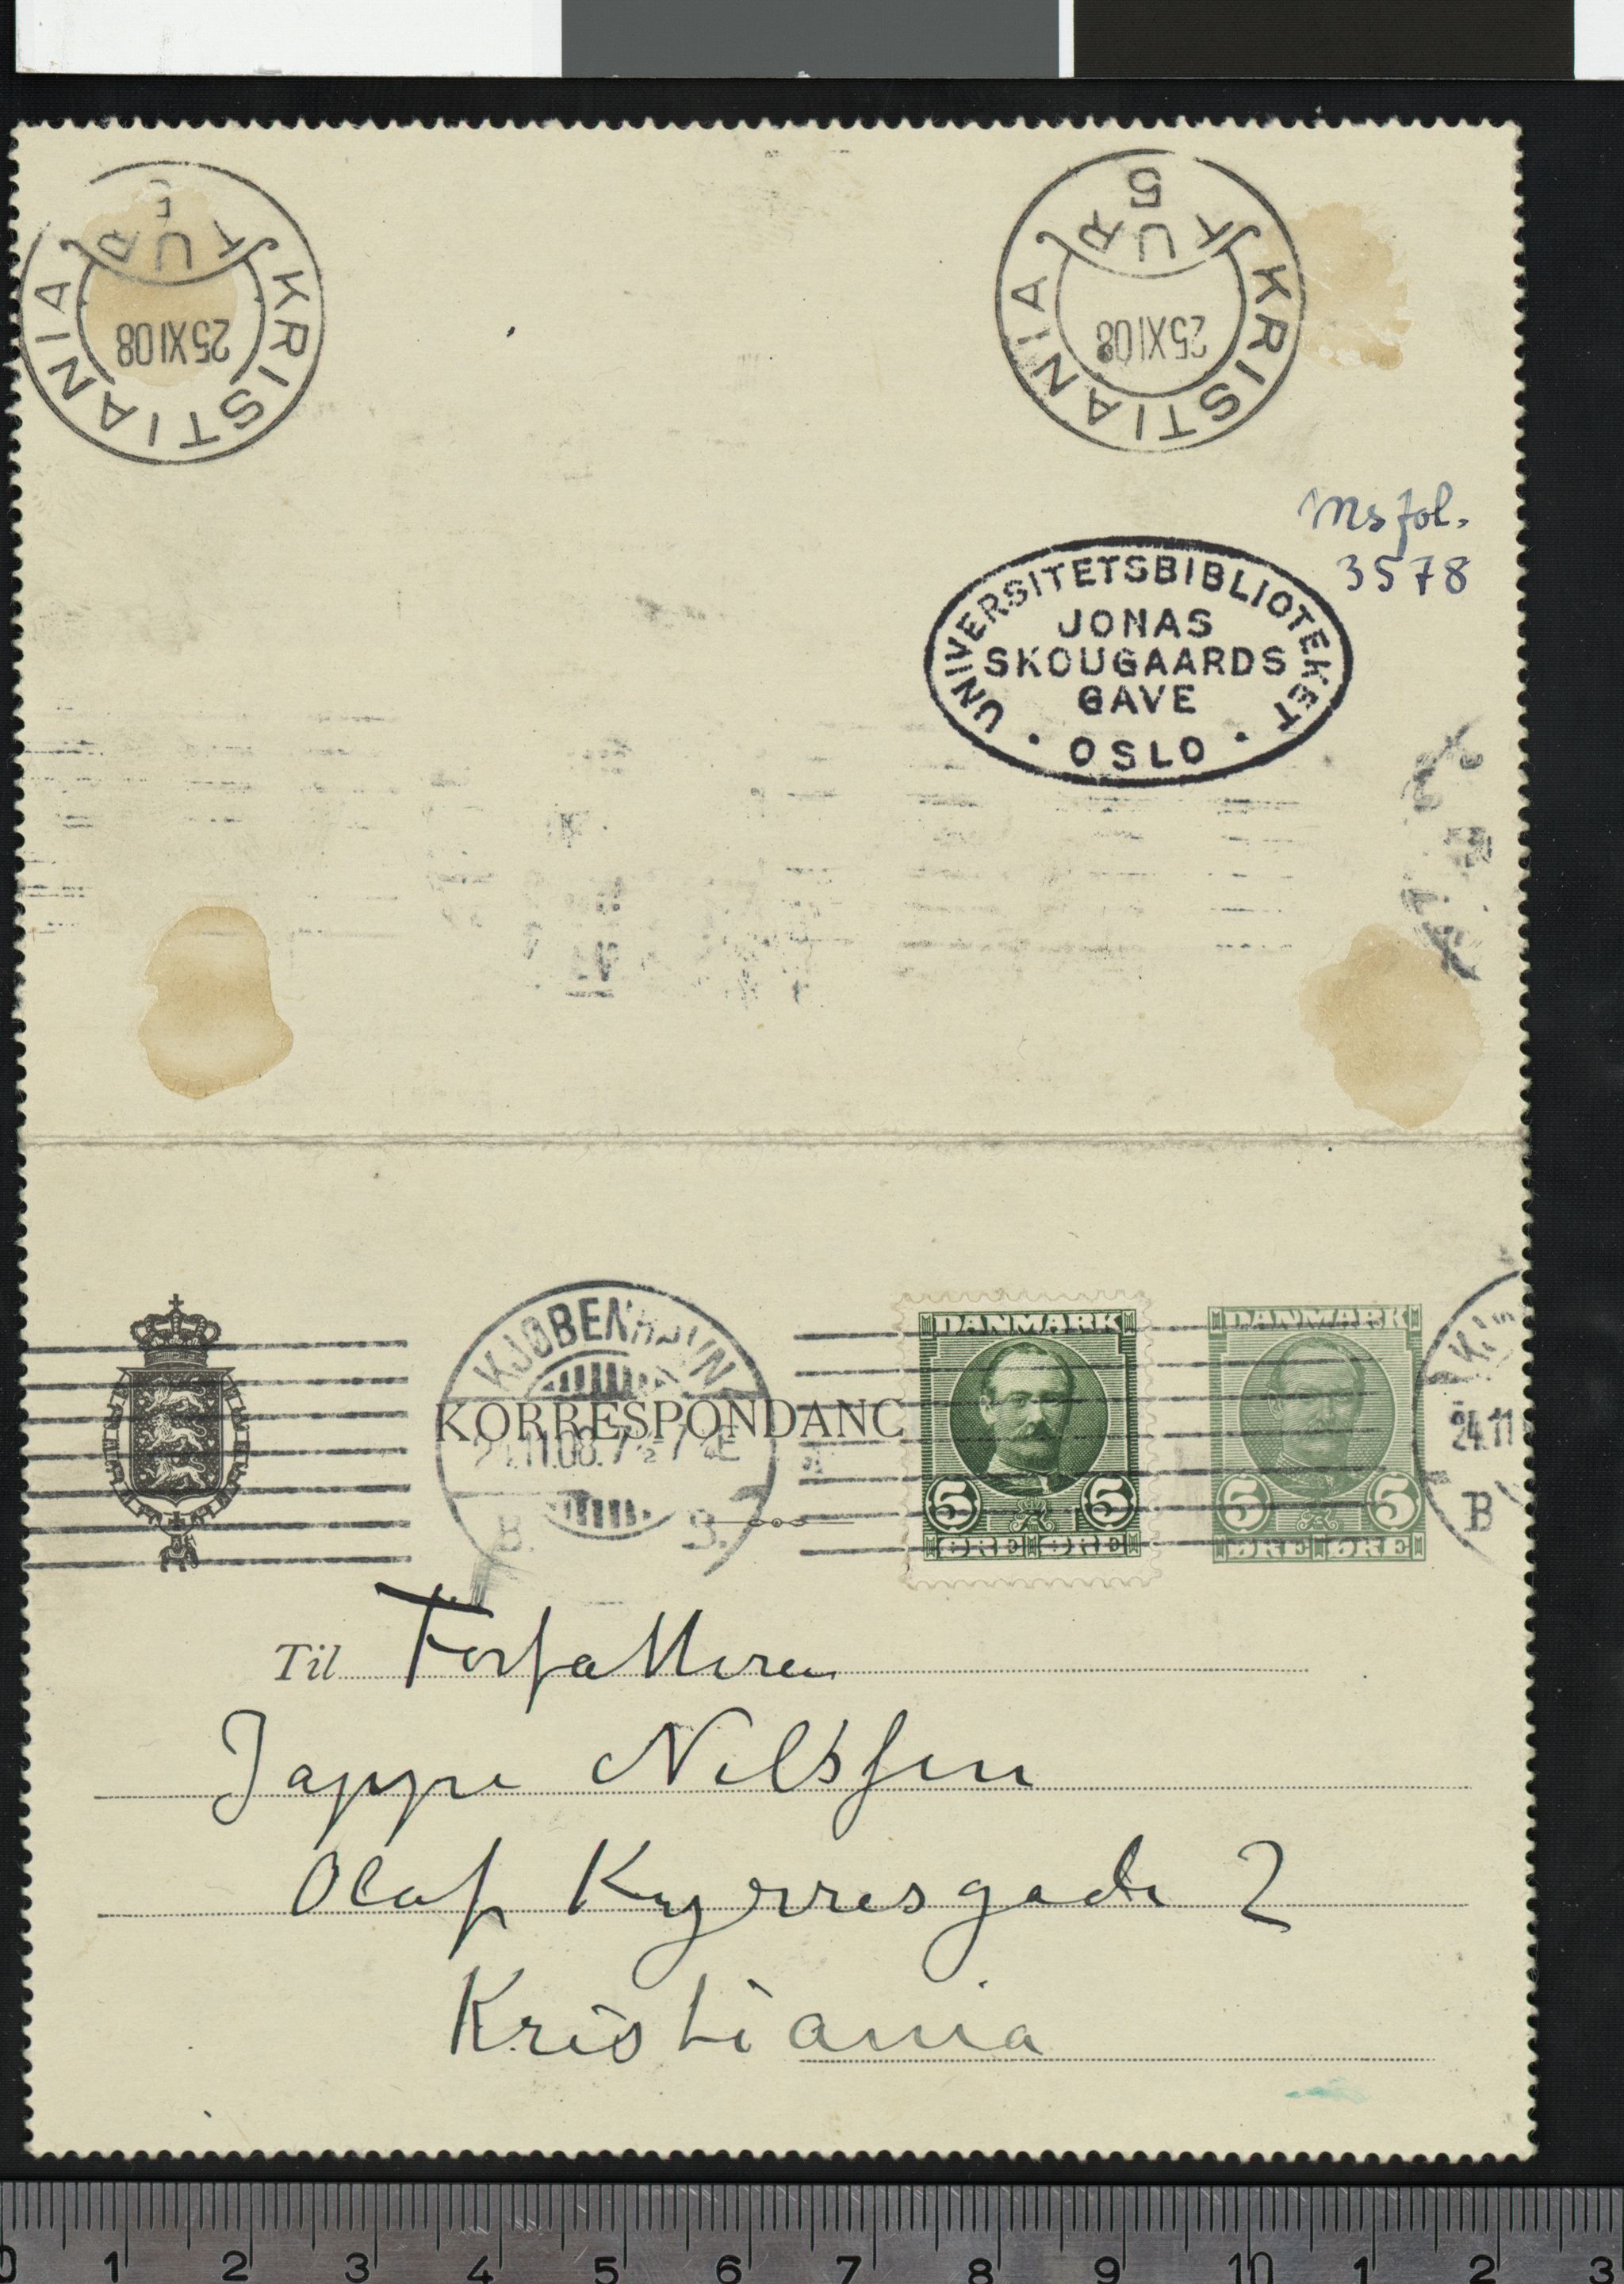 TUR 5
KRISTIANIA
25XI08
TUR
KRISTIANIA
25XI08
Ms fol.
3578
UNIVERSITETSBIBLIOTEKET
JONAS
SKOUGAARDS
GAVE
OSLO
KJØBENHAVN
KORRESPONDANC
24.11.08. 7½-7 ¾E
B. 3.
DANMARK
5 5
ØRE ØRE
DANMARK
5 5
ØRE ØRE
24.11
B
Til Forfatteren
Jappe Nilssen
Olaf Kyrresgade 2
Kristiania
0 1 2 3 4 5 6 7 8 9 10 1 2 3